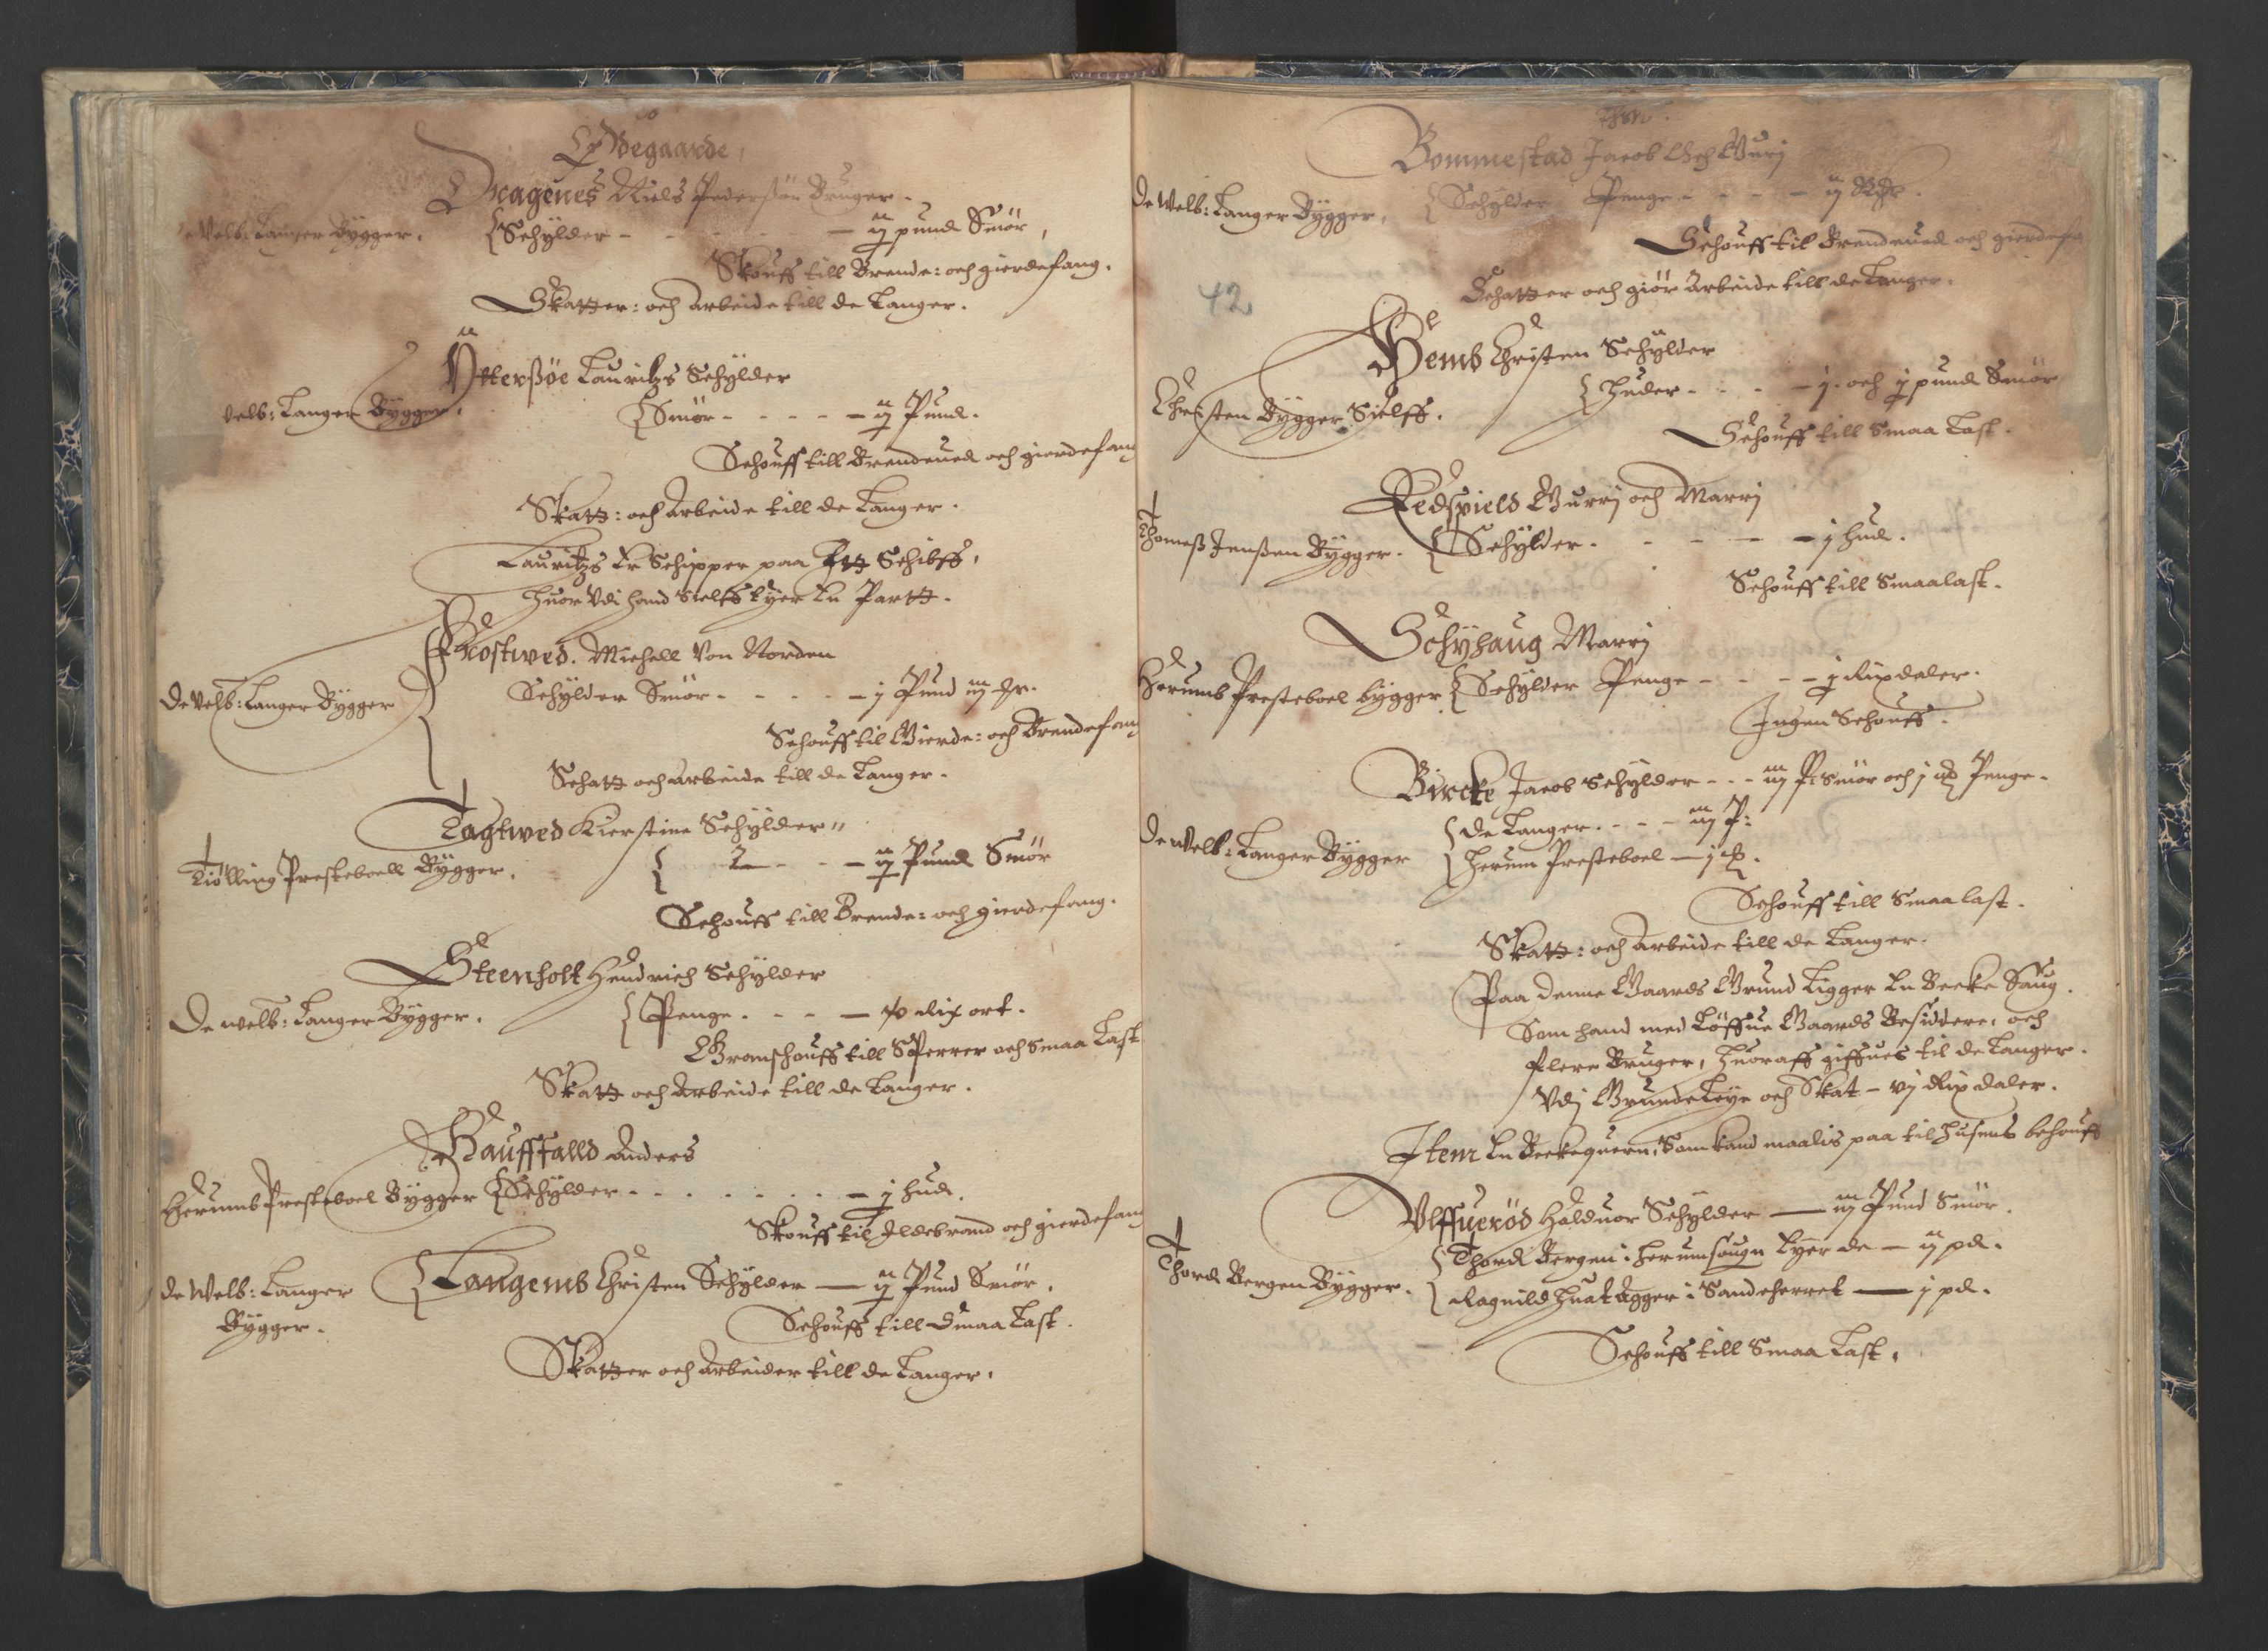 Ødegaarde,
Dragenes Niels Pedersøn Bruger.
Velb: Langer Bygger. Schylder - - - ij pund Smör,
Skouff till Brende: och gierdefang.
Skatter: och Arbeide till de Langer.
Ytterßöe Lauritzs Schylder
Velb: Langer Bygger. Smör - - - - ij Pund.
Schouff till Brendeued och gierdefang
Skatt: och Arbeide till de Langer.
Lauritzs Er Schipper paa Ett Schibff,
huor Vdi hand Sielff Eyer En Partt.
Frostwed. Michell Von Norden
De Velb: Langer Bygger Schylder Smör - - - - j Pund iij
Schouff til Gierde: och Brendefang
Schatt och Arbeide till de Langer.
Tagtwed Kierstine Schylder
Tiölling Presteboell Bygger. - - - ij Pund Smör
Schouff till Brende: och gierdefang.
Steenholt Hendrich Schylder
De welb: Langer Bygger. Penge. - - - Rix ort.
Granschouff till Sperrer och Smaa Last
Skatt och Arbeide till de Langer.
Hauffalld Anders
Herumbs Presteboel Bygger Schylder - - - - - - j hud.
Skouff til Ildebrand och gierdefang
De Welb: Langer Langemb Christen Schylder — ij Pund Smör.
Bygger.
Schouff till Smaa Last.
Skatter och Arbeider till de Langer.
Bommestad Jacob och Guri
De Welb: Langer Bygger, Schylder Penge - - - - ij
Schouff til Brendeued och gierdefa
Schatter och giör Arbeide till de Langer.
42
Hemb Christen Schylder
Christen Bygger Sielff. Huder - - - - j. och j pund Smör
Schouff till Smaa Last.
Redspield Gurrj och Marrj
Thomeß Jenßen Bygger. Schylder. - - - - j hud.
Schouff till Smaalast.
Schyhaug Marrj
Herumbs Presteboel bygger Schylder Penge - - - j Rixdaler.
Ingen Schouff.
Bircke Jacob Schylder - - - iij P: Smör och j Penge.
De Welb: Langer Bygger De Langer. - - - iij P:
Herum Presteboel — j
Schouff till Smaa last.
Skatt: och Arbeide till de Langer.
Paa denne Gaards Grund Ligger En Becke Saug.
Som hand med Löffue Gaards Besiddere, och
flere Bruger, huoraff giffues til de Langer.
Vdj GrundeLeye och Skat - vj Rixdaler.
Item En Beckequern, Som kand maalis paa til husens behouff
Vlffuerød Halduor Schylder — iij Pund Smör.
Thord Bergen i Herumsougn Eyer de — ij pd.
Thord Bergen Bygger. Ragnild Huatagger i Sandeherret — j pd.
Schouff till Smaa Last.